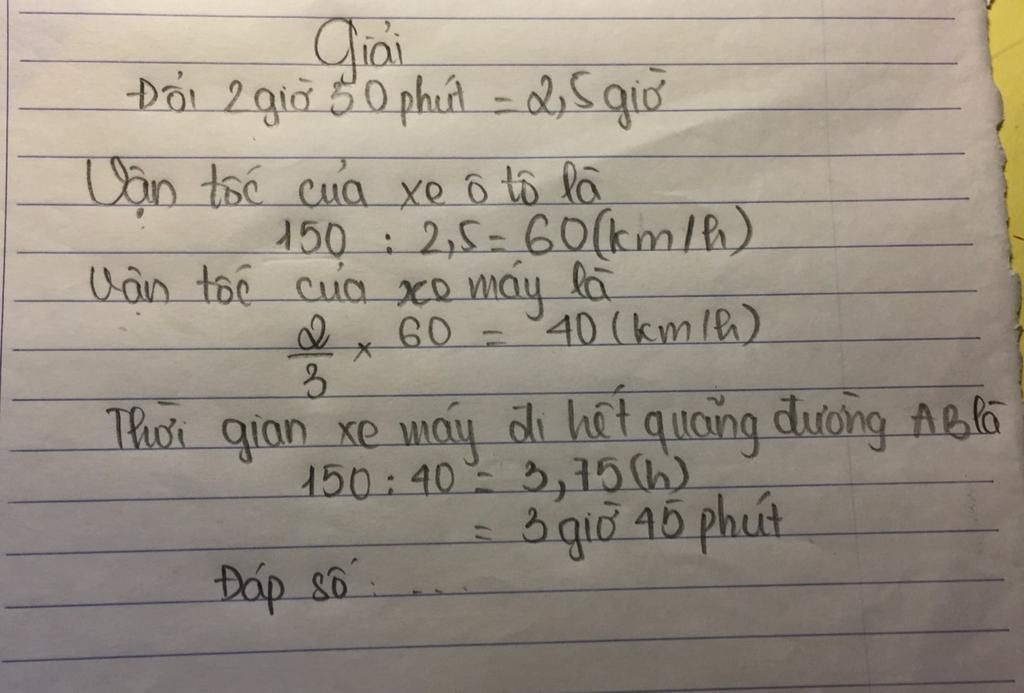 Giải
Đổi 2 giờ 30 phút = 2,5 giờ
Vận tốc của xe ô tô là
150 : 2,5 = 60 (km/h)
Vận tốc của xe máy là
2/3 × 60 = 40 (km/h)
Thời gian xe máy đi hết quãng đường AB là
150 : 40 = 3,75 (h)
= 3 giờ 45 phút
Đáp số : ....